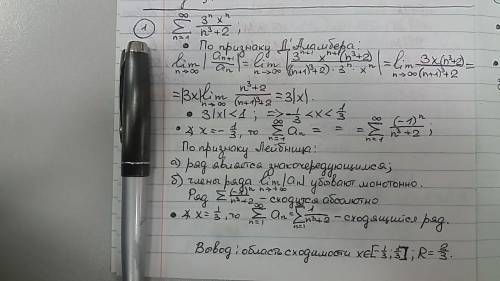 ① ∑_{n=1}^{∞} 3ⁿxⁿ/(n³+2);
• По признаку Д'Аламбера:
lim_{n→∞} |a_{n+1}/a_n| = lim_{n→∞} |3^{n+1} x^{n+1}(n³+2)/((n+1)³+2)·3ⁿ·xⁿ| = lim_{n→∞} 3x(n³+2)/((n+1)³+2) =
= |3x| lim_{n→∞} (n³+2)/((n+1)³+2) = 3|x|.
• 3|x|<1; => -1/3<x<1/3
• ∢ x=-1/3, то ∑_{n=1}^{∞} a_n = = = ∑_{n=1}^{∞} (-1)ⁿ/(n³+2);
По признаку Лейбница:
а) ряд является знакочередующимся;
б) члены ряда lim_{n→+∞} |a_n| убывают монотонно.
Ряд ∑ (-1)ⁿ/(n³+2) - сходится абсолютно
• ∢ x=1/3, то ∑_{n=1}^{∞} a_n = ∑_{n=1}^{∞} 1/(n³+2) - сходящийся ряд.
Вывод: область сходимости x∈[-1/3, 1/3]; R=2/3.